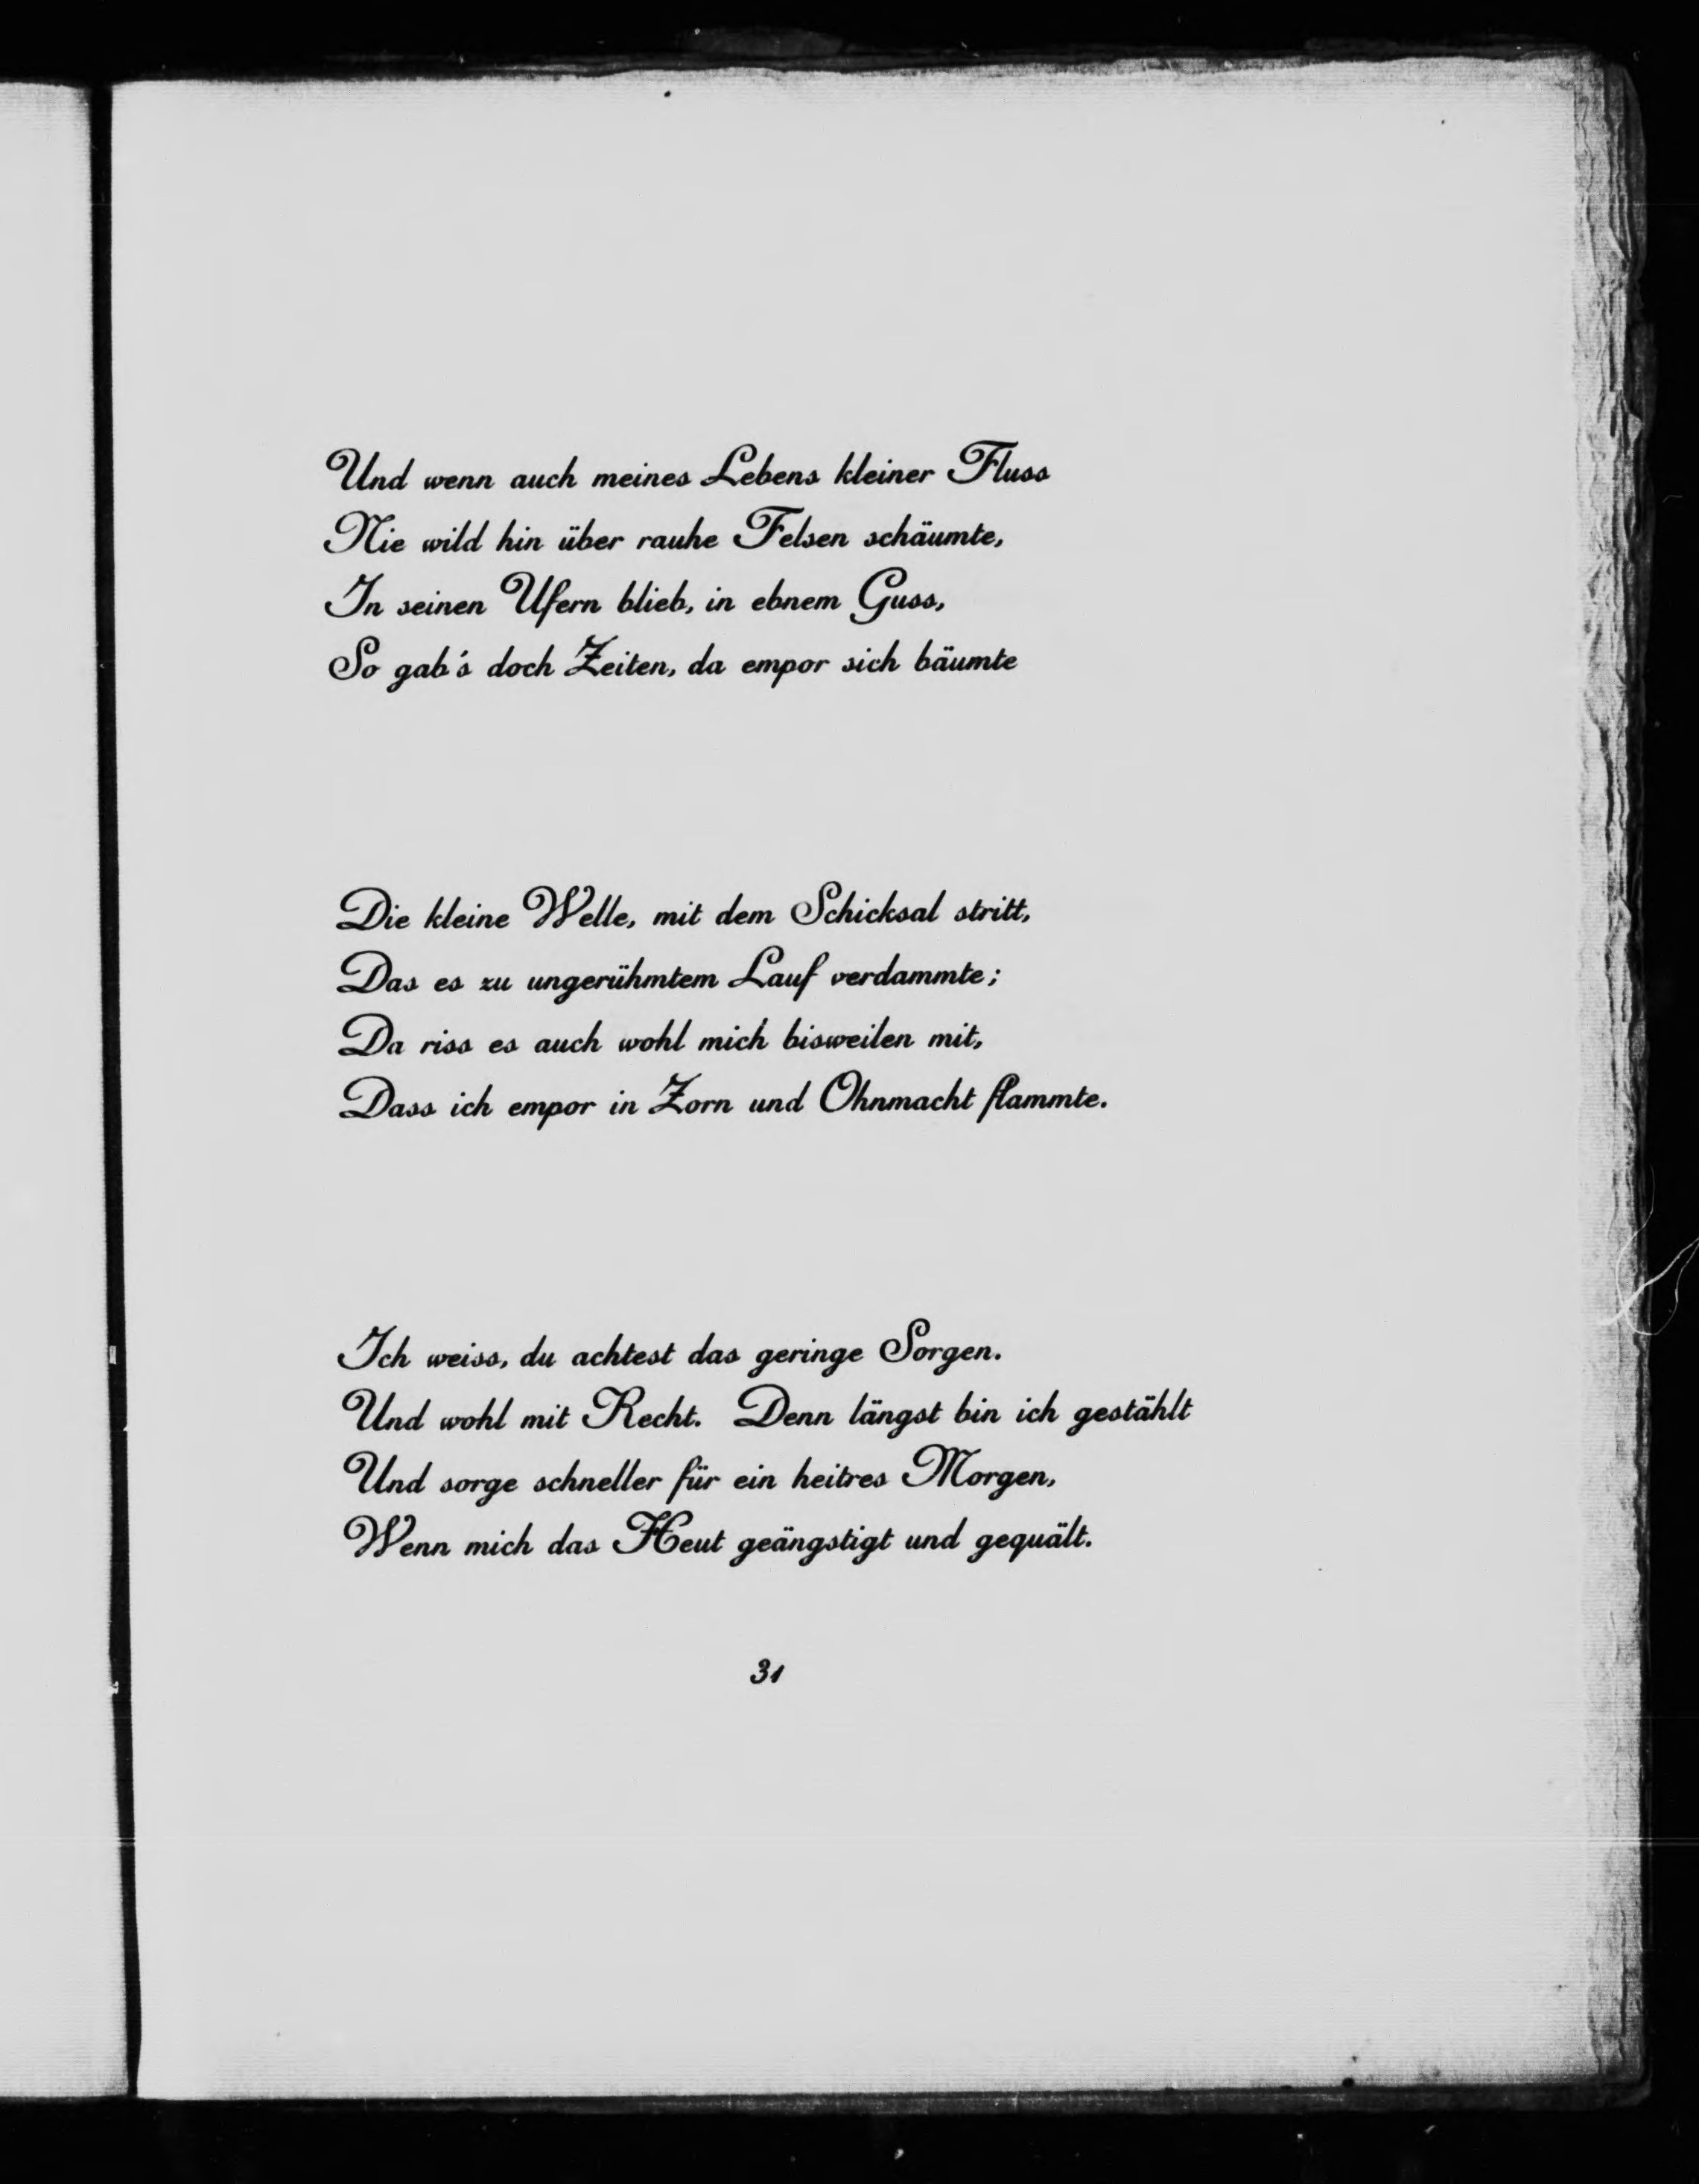 Und wenn auch meines Lebens kleiner Fluss
Nie wild hin über rauhe Felsen schäumte,
In seinen Ufern blieb, in ebnem Guss,
So gab's doch Zeiten, da empor sich bäumte
Die kleine Welle, mit dem Schicksal stritt,
Das es zu ungerühmtem Lauf verdammte;
Da riss es auch wohl mich bisweilen mit,
Dass ich empor in Zorn und Ohnmacht flammte.
Ich weiss, du achtest das geringe Sorgen.
Und wohl mit Recht. Denn längst bin ich gestählt
Und sorge schneller für ein heitres Morgen,
Wenn mich das Heut geängstigt und gequält.
31